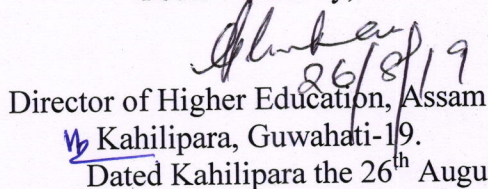 26/8/19
Director of Higher Education, Assam
Kahilipara, Guwahati-19.
Dated Kahilipara the 26th Augu